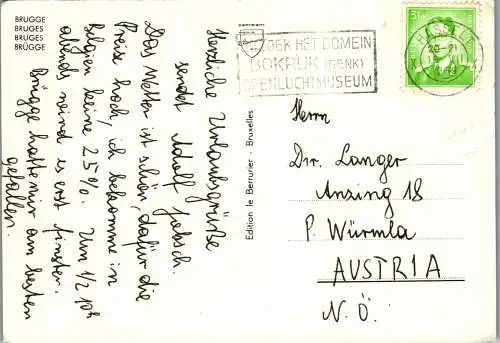 BRUGGE
BRUGES
BRUGES
BRÜGGE
Herzliche Urlaubsgrüße
sendet Adolf
Das Wetter ist schön, dafür die
Preise hoch, ich bekomme in
Belgien keine 25%. Um 1/2 ph
abends wird es erst finster.
Brügge hatte mir am besten
gefallen.
Edition le Berrurier - Bruxelles
OEK HET DOMEIN
BOKRIJK (GENK)
OPENLUCHTMUSEUM
HASSELT
20-21
3F
Herrn
Dir. Langer
Anzing 18
P. Würmla
AUSTRIA
N.Ö.